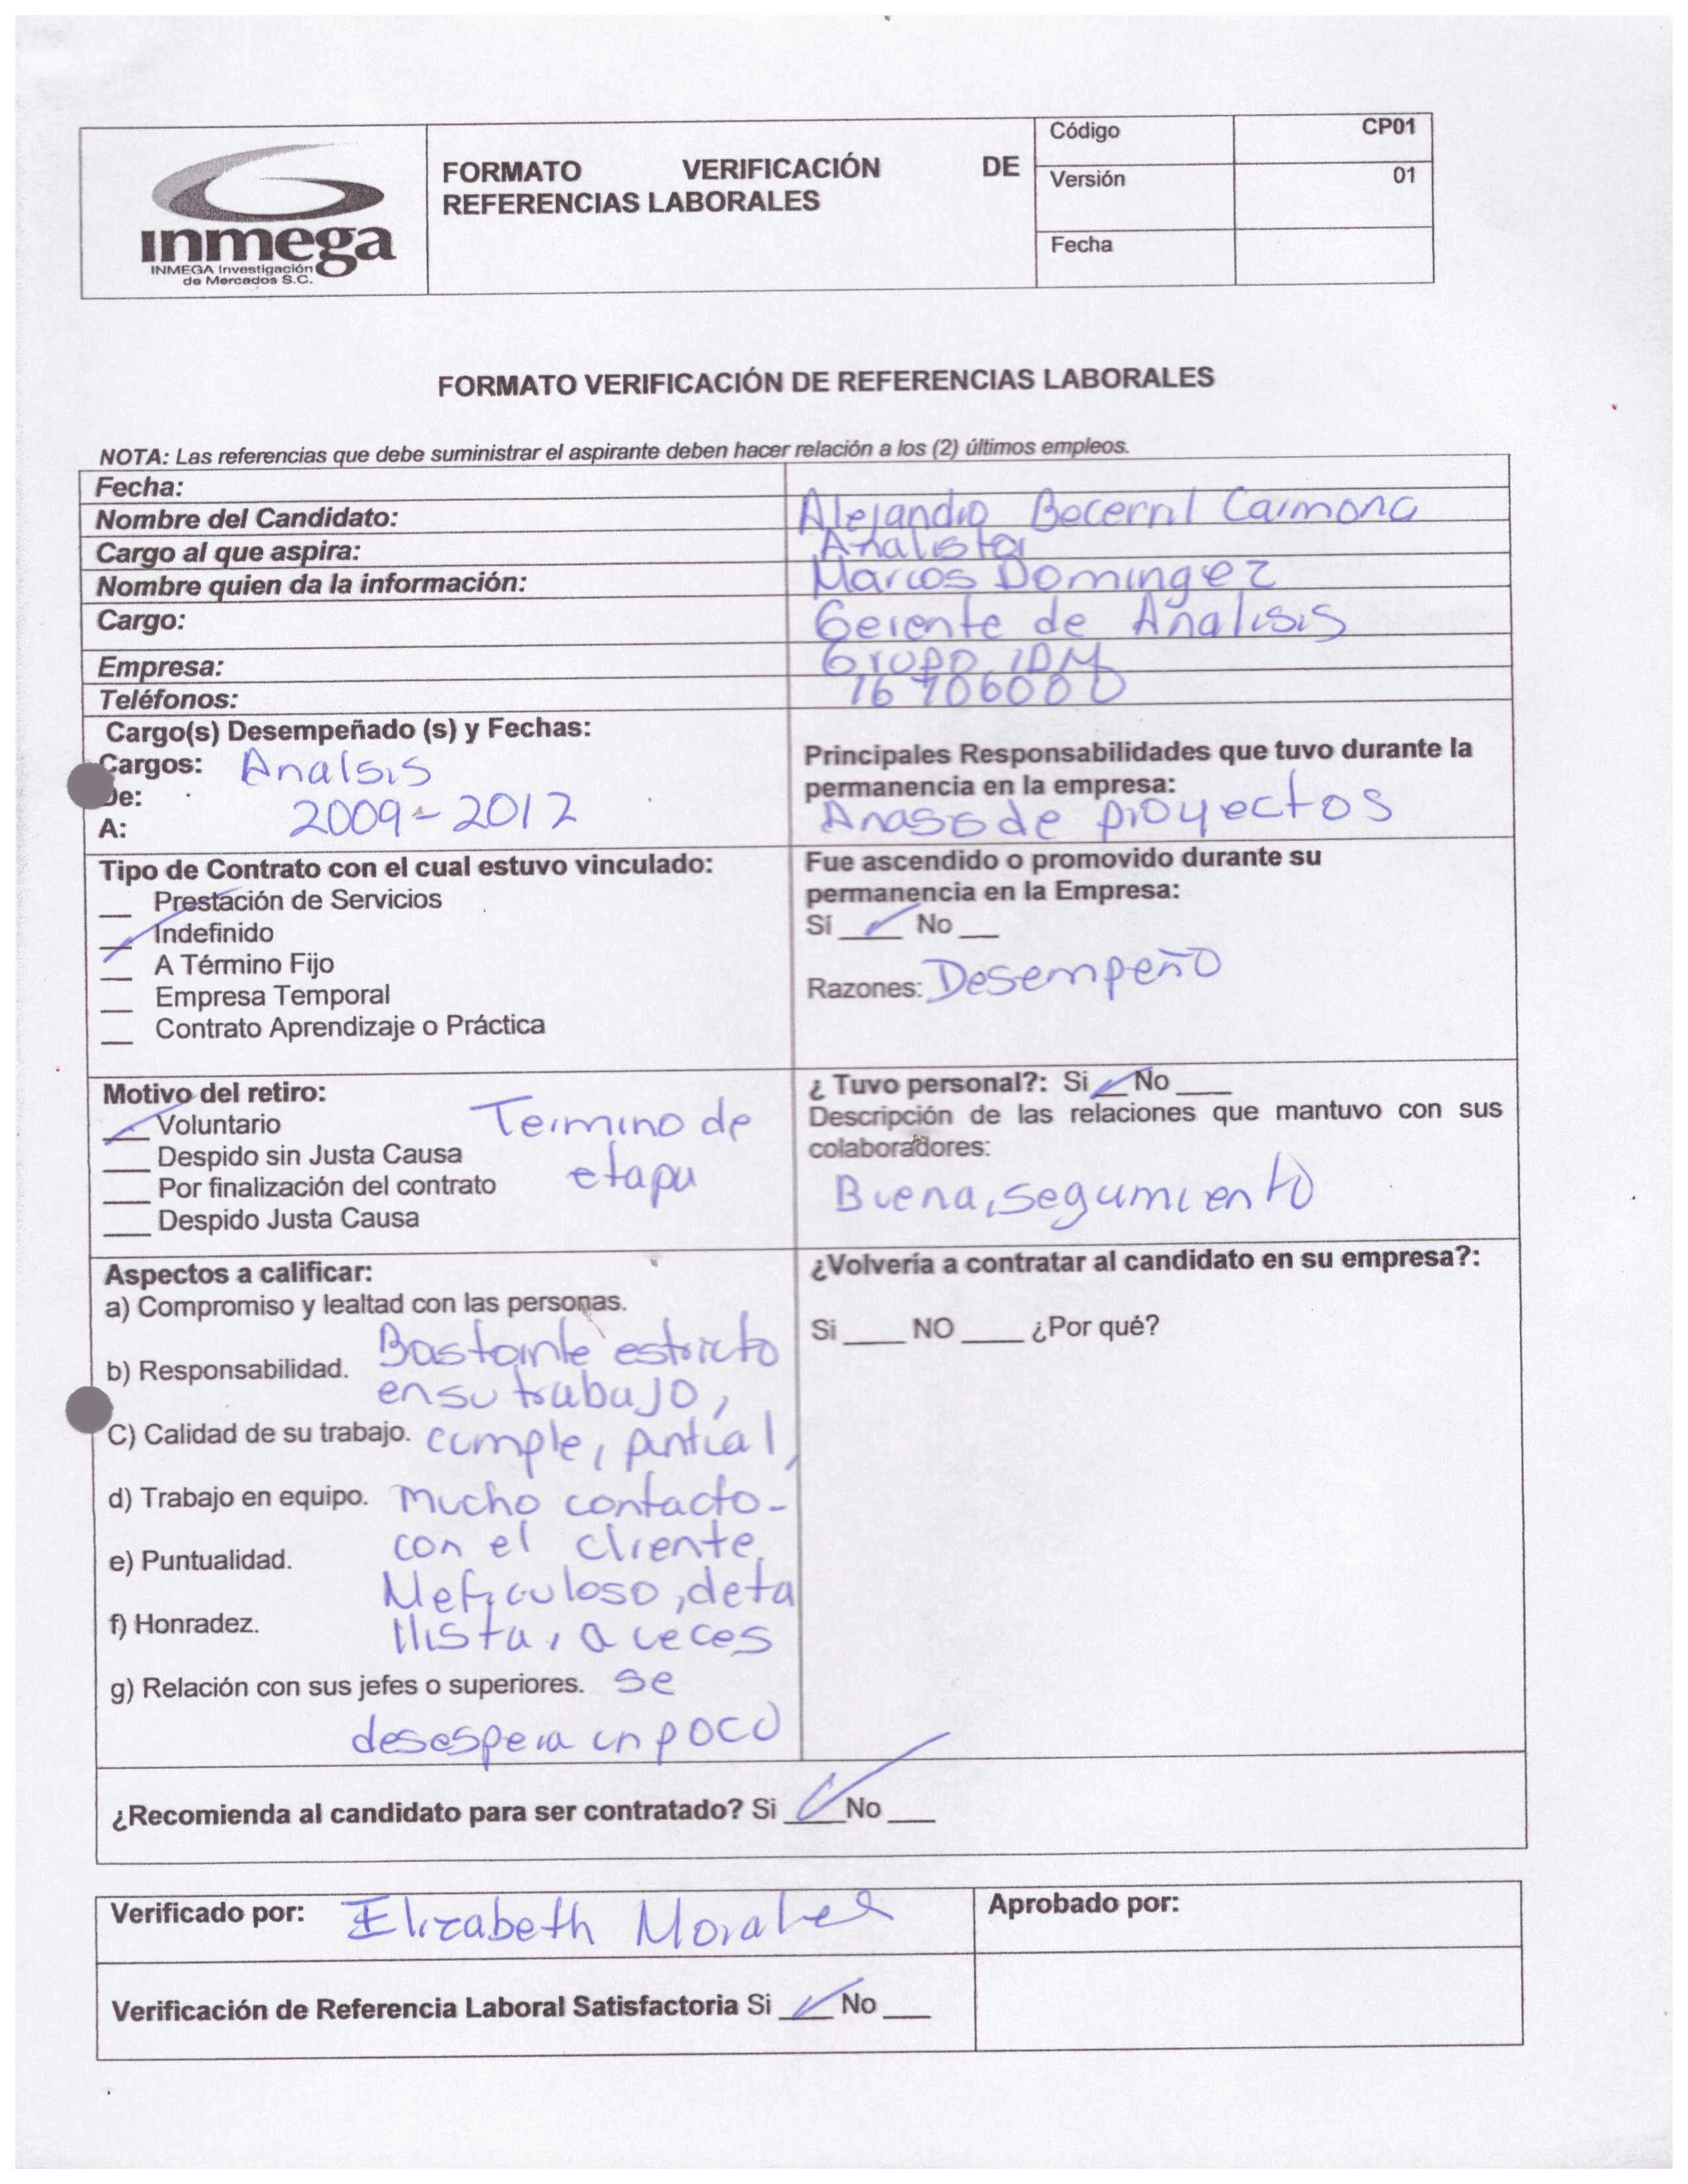 inmega
INMEGA Investigación
de Mercados S.C.
FORMATO VERIFICACIÓN DE
REFERENCIAS LABORALES
Código CP01
Versión 01
Fecha
FORMATO VERIFICACIÓN DE REFERENCIAS LABORALES
NOTA: Las referencias que debe suministrar el aspirante deben hacer relación a los (2) últimos empleos.
Fecha:
Nombre del Candidato: Alejandro Becerril Carmona
Cargo al que aspira: Analista
Nombre quien da la información: Marcos Dominguez
Cargo: Gerente de Analisis
Empresa: Grupo IDM
Teléfonos:
Cargo(s) Desempeñado (s) y Fechas:
Cargos: Analsis
De:
A: 2009-2012
Principales Responsabilidades que tuvo durante la
permanencia en la empresa:
de proyectos
Tipo de Contrato con el cual estuvo vinculado:
__ Prestación de Servicios
__ Indefinido
__ A Término Fijo
__ Empresa Temporal
__ Contrato Aprendizaje o Práctica
Fue ascendido o promovido durante su
permanencia en la Empresa:
Sí ✓ No __
Razones: Desempeño
Motivo del retiro:
✓ Voluntario
___ Despido sin Justa Causa
___ Por finalización del contrato
___ Despido Justa Causa
Termino de
etapa
¿ Tuvo personal?: Si ✓ No ___
Descripción de las relaciones que mantuvo con sus
colaboradores:
Buena, segumiento
Aspectos a calificar:
a) Compromiso y lealtad con las personas.
b) Responsabilidad. Bastante estricto
en su trabajo,
C) Calidad de su trabajo. cumple, puntual,
d) Trabajo en equipo. mucho contacto-
con el cliente,
e) Puntualidad.
Meticuloso, deta
f) Honradez.
llista, a veces
g) Relación con sus jefes o superiores. se
desespera un poco
¿Volvería a contratar al candidato en su empresa?:
Si ____ NO ____ ¿Por qué?
¿Recomienda al candidato para ser contratado? Si ✓ No ___
Verificado por: Elizabeth Morales
Aprobado por:
Verificación de Referencia Laboral Satisfactoria Si ✓ No ___